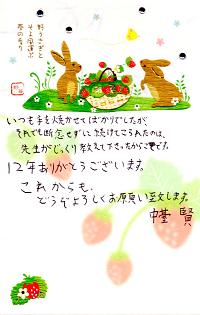 野うさぎと
そよ風運ぶ
春の香り
いつも手を焼かせてばかりでしたが、
それでも断念せずに続けてこられたのは、
先生がじっくり教えて下さったからこそです。
12年ありがとうございます。
これからも、
どうぞよろしくお願い致します。
賢